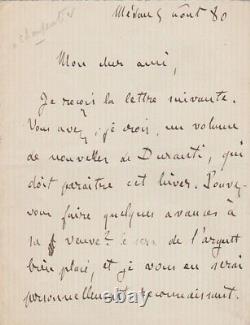 Charpentier
Médan 5 août 80
Mon cher ami,
Je reçois la lettre suivante.
Vous avez, je crois, un volume
de nouvelles de Duranty, qui
doit paraître cet hiver. Pouvez-
vous faire quelques avances à
sa veuve? Ce sera de l'argent
bien placé, et je vous en serai
personnellement reconnaissant.